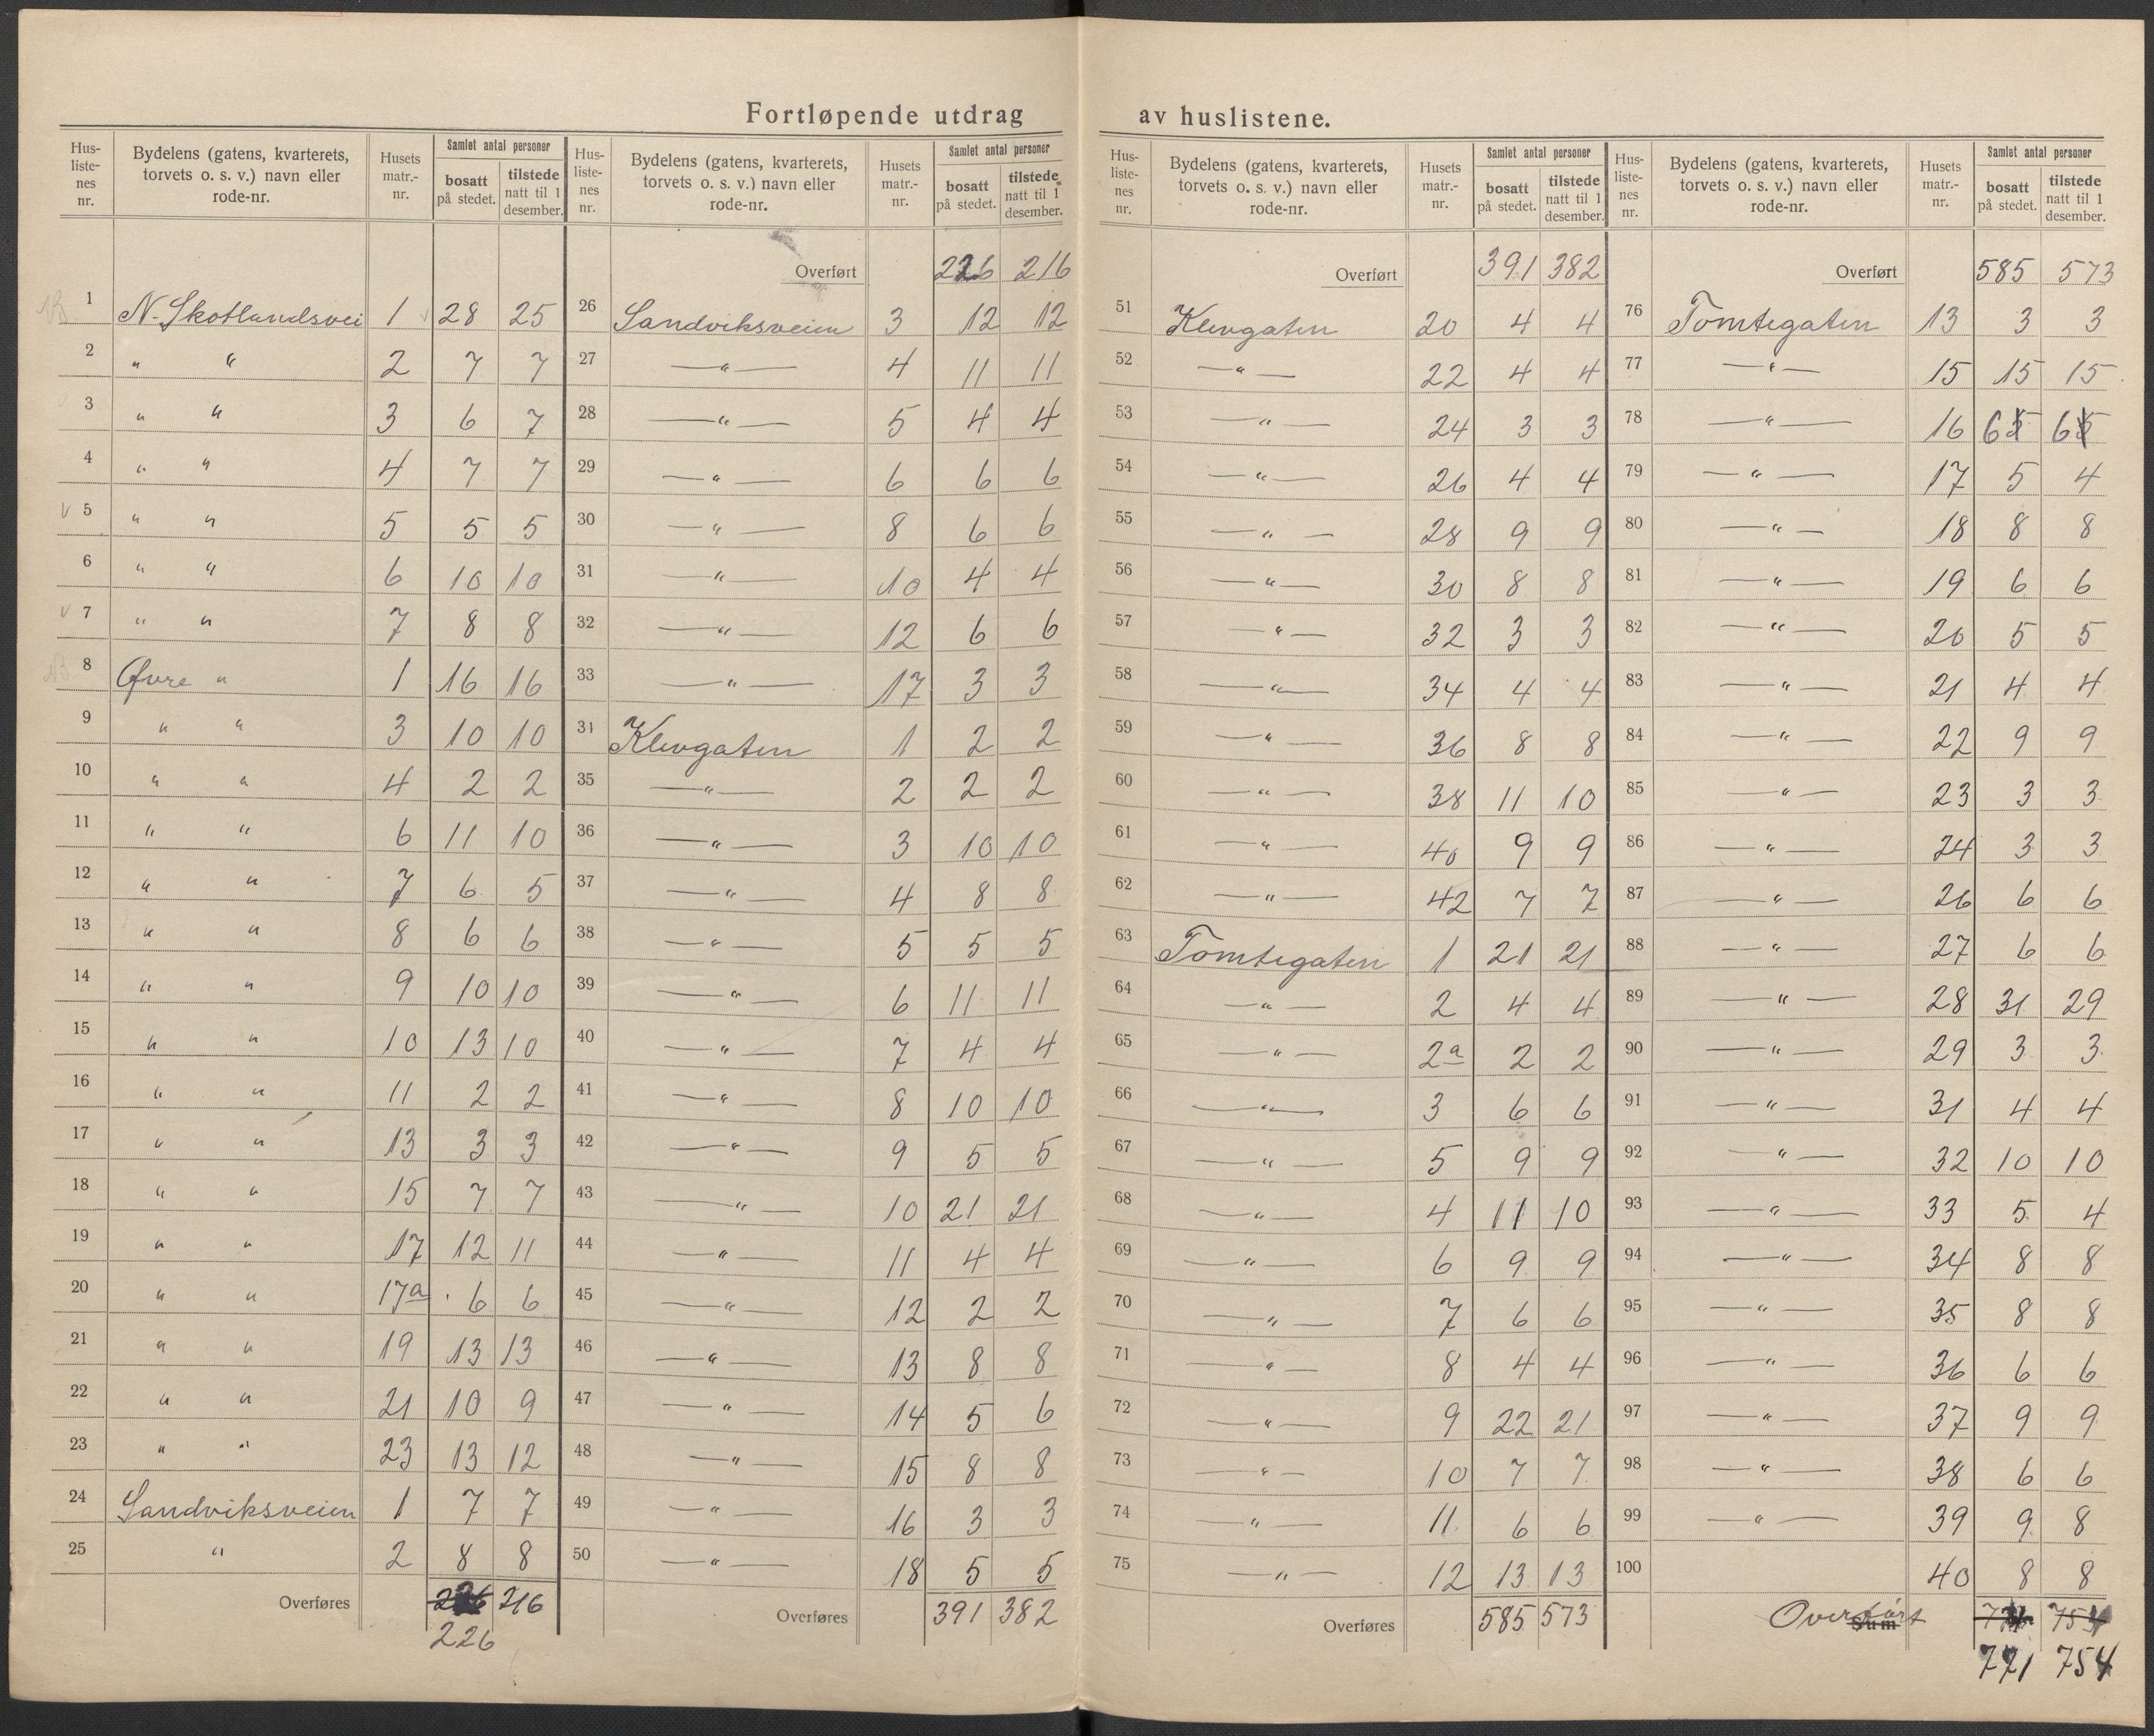 Fortløpende utdrag av huslistene.
Hus-listenes nr. | Bydelens (gatens, kvarterets, torvets o. s. v.) navn eller rode-nr. | Husets matr.-nr. | Samlet antal personer bosatt på stedet. | tilstede natt til 1 desember.
1 N. Skotlandsvei 1 28 25
2 " " 2 7 7
3 " " 3 6 7
4 " " 4 7 7
5 " " 5 5 5
6 " " 6 10 10
7 " " 7 8 8
8 Øvre " 1 16 16
9 " " 3 10 10
10 " " 4 2 2
11 " " 6 11 10
12 " " 7 6 5
13 " " 8 6 6
14 " " 9 10 10
15 " " 10 13 10
16 " " 11 2 2
17 " " 13 3 3
18 " " 15 7 7
19 " " 17 12 11
20 " " 17a 6 6
21 " " 19 13 13
22 " " 21 10 9
23 " " 23 13 12
24 Sandviksveien 1 7 7
25 " 2 8 8
Overføres 216
226
Hus-listenes nr. | Bydelens (gatens, kvarterets, torvets o. s. v.) navn eller rode-nr. | Husets matr.-nr. | Samlet antal personer bosatt på stedet. | tilstede natt til 1 desember.
Overført 226 216
26 Sandviksveien 3 12 12
27 —"— 4 11 11
28 —"— 5 4 4
29 —"— 6 6 6
30 —"— 8 6 6
31 —"— 10 4 4
32 —"— 12 6 6
33 —"— 17 3 3
34 Klevgaten 1 2 2
35 —"— 2 2 2
36 —"— 3 10 10
37 —"— 4 8 8
38 —"— 5 5 5
39 —"— 6 11 11
40 —"— 7 4 4
41 —"— 8 10 10
42 —"— 9 5 5
43 —"— 10 21 21
44 —"— 11 4 4
45 —"— 12 2 2
46 —"— 13 8 8
47 —"— 14 5 6
48 —"— 15 8 8
49 —"— 16 3 3
50 —"— 18 5 5
Overføres 391 382
Hus-listenes nr. | Bydelens (gatens, kvarterets, torvets o. s. v.) navn eller rode-nr. | Husets matr.-nr. | Samlet antal personer bosatt på stedet. | tilstede natt til 1 desember.
Overført 391 382
51 Klevgaten 20 4 4
52 —"— 22 4 4
53 —"— 24 3 3
54 —"— 26 4 4
55 —"— 28 9 9
56 —"— 30 8 8
57 —"— 32 3 3
58 —"— 34 4 4
59 —"— 36 8 8
60 —"— 38 11 10
61 —"— 40 9 9
62 —"— 42 7 7
63 Tomtegaten 1 21 21
64 —"— 2 4 4
65 —"— 2a 2 2
66 —"— 3 6 6
67 —"— 5 9 9
68 —"— 4 11 10
69 —"— 6 9 9
70 —"— 7 6 6
71 —"— 8 4 4
72 —"— 9 22 21
73 —"— 10 7 7
74 —"— 11 6 6
75 —"— 12 13 13
Overføres 585 573
Hus-listenes nr. | Bydelens (gatens, kvarterets, torvets o. s. v.) navn eller rode-nr. | Husets matr.-nr. | Samlet antal personer bosatt på stedet. | tilstede natt til 1 desember.
Overført 585 573
76 Tomtegaten 13 3 3
77 —"— 15 15 15
78 —"— 16 6 6
79 —"— 17 5 4
80 —"— 18 8 8
81 —"— 19 6 6
82 —"— 20 5 5
83 —"— 21 4 4
84 —"— 22 9 9
85 —"— 23 3 3
86 —"— 24 3 3
87 —"— 26 6 6
88 —"— 27 6 6
89 —"— 28 31 29
90 —"— 29 3 3
91 —"— 31 4 4
92 —"— 32 10 10
93 —"— 33 5 4
94 —"— 34 8 8
95 —"— 35 8 8
96 —"— 36 6 6
97 —"— 37 9 9
98 —"— 38 6 6
99 —"— 39 9 8
100 40 8 8
Overført Sum
771 754